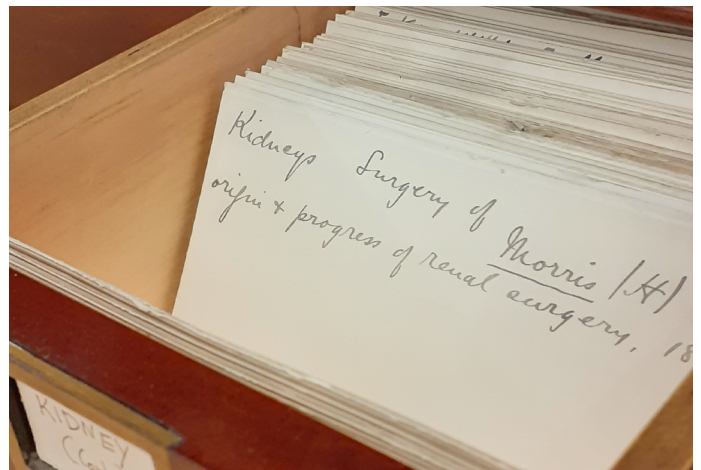 Kidneys Surgery of Morris (H)
origin & progress of renal surgery, 18
KIDNEY